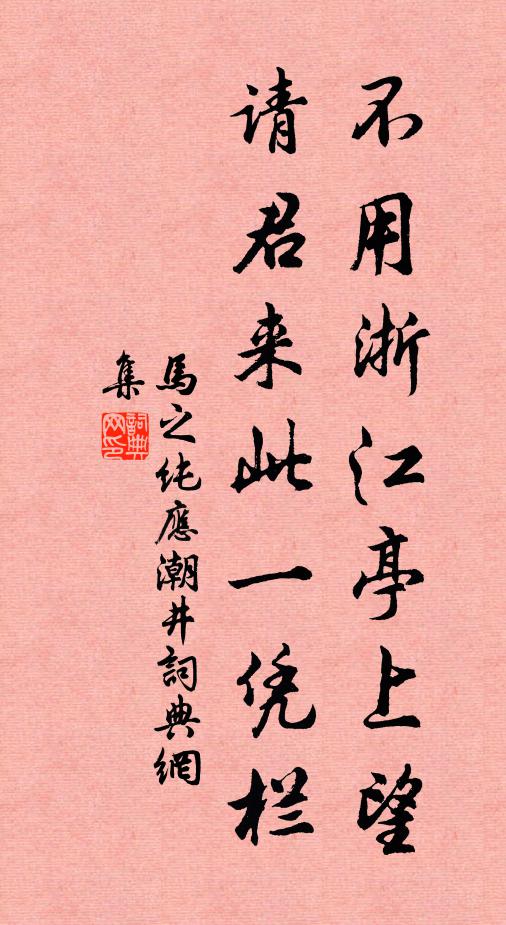 不用浙江亭上望
请君来此一凭栏
馬之纯應潮井詞典網
集
詞典网印